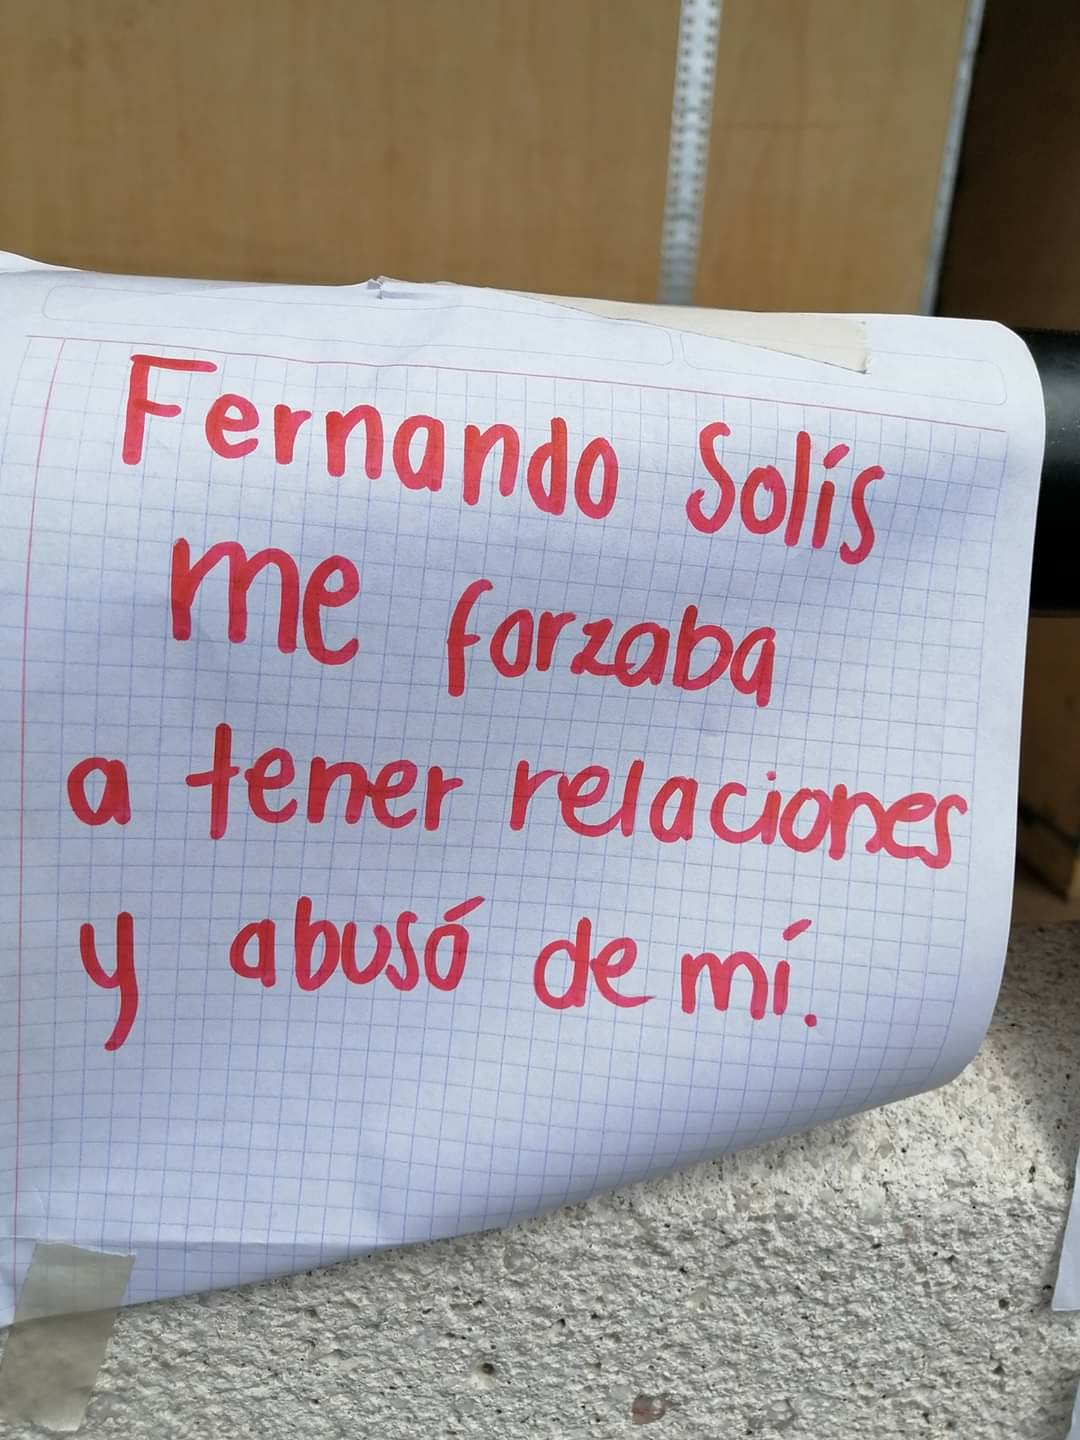 Fernando Solís
me forzaba
a tener relaciones
y abusó de mí.